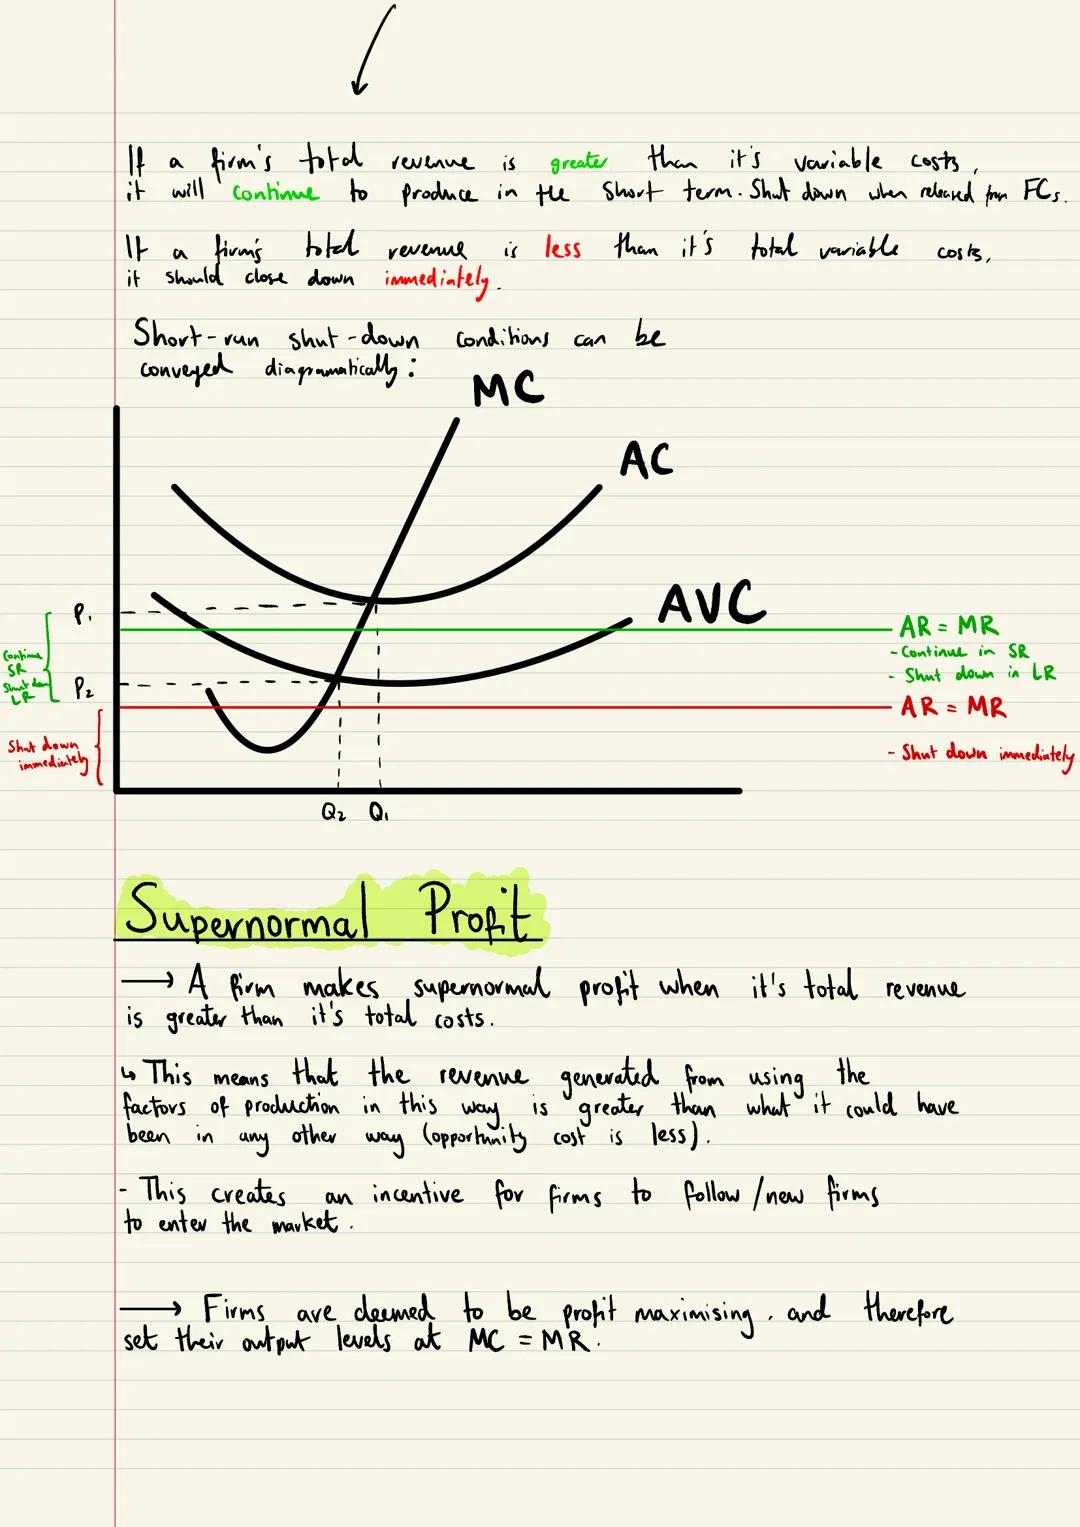 If a firm's total revenue is greater than it's variable costs,
it will continue to produce in the short term. Shut down when released from FCs.
If a firm's total revenue is less than it's total variable costs,
it should close down immediately.
Short-run shut-down conditions can be
conveyed diagramatically:
MC
AC
AVC
P1
AR = MR
- Continue in SR
- Shut down in LR
Continue
SR
Shut down
LR
P2
AR = MR
- Shut down immediately
Shut down
immediately
Q2 Q1
Supernormal Profit
→ A firm makes supernormal profit when it's total revenue
is greater than it's total costs.
↳ This means that the revenue generated from using the
factors of production in this way is greater than what it could have
been in any other way (opportunity cost is less).
- This creates an incentive for firms to follow/new firms
to enter the market.
→ Firms are deemed to be profit maximising, and therefore
set their output levels at MC = MR.